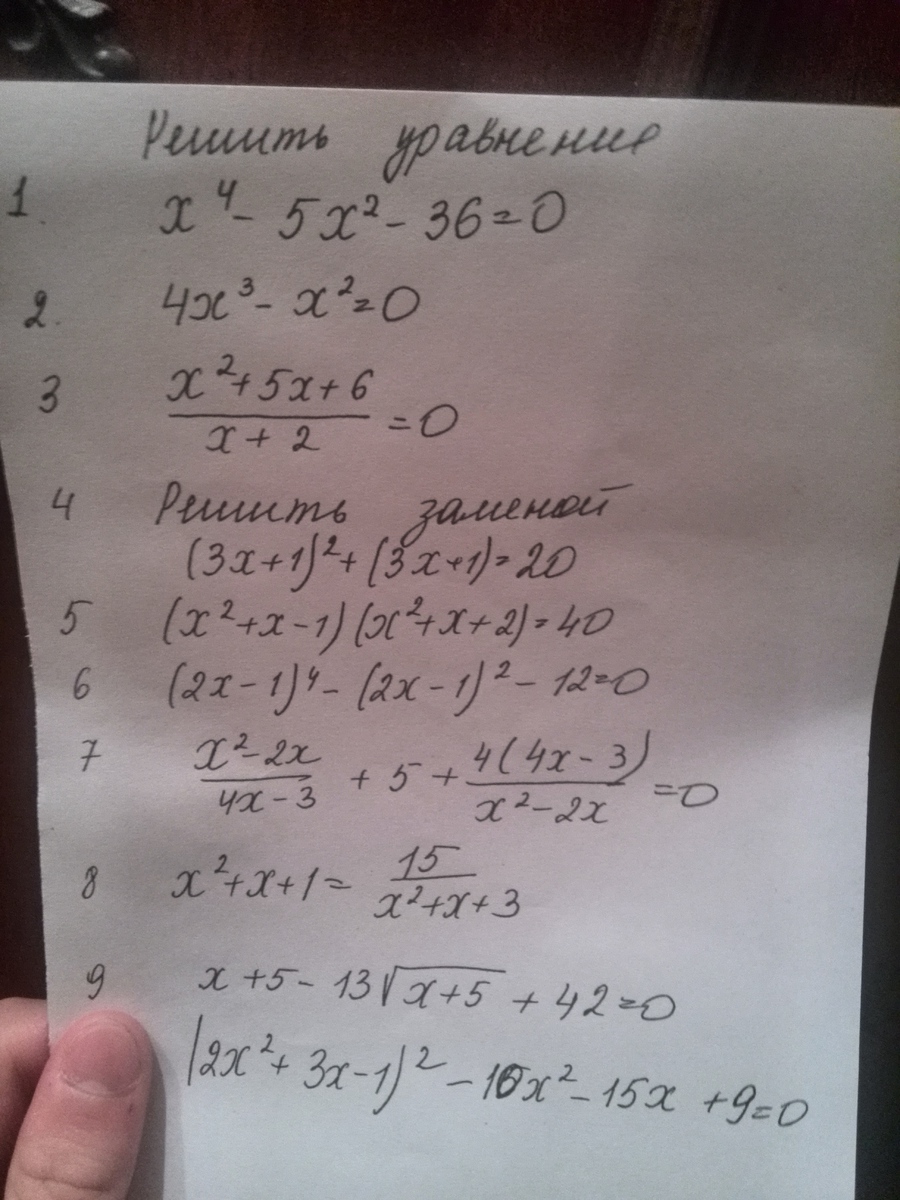 Решить уравнение
1. x⁴ - 5x² - 36 = 0
2. 4x³ - x² = 0
3 (x² + 5x + 6)/(x + 2) = 0
4 Решить заменой
(3x + 1)² + (3x + 1) = 20
5 (x² + x - 1)(x² + x + 2) = 40
6 (2x - 1)⁴ - (2x - 1)² - 12 = 0
7 (x² - 2x)/(4x - 3) + 5 + 4(4x - 3)/(x² - 2x) = 0
8 x² + x + 1 = 15/(x² + x + 3)
9 x + 5 - 13√(x + 5) + 42 = 0
(2x² + 3x - 1)² - 10x² - 15x + 9 = 0